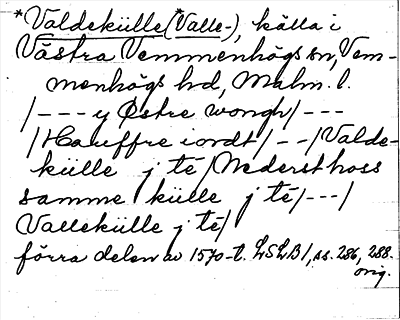 *Valdekülle (*Valle-), källa i
Västra Vemmenhögs sn, Vem-
menhögs hd, Malm. l.
/---y Østre wongh/---
/Hauffre iordt/--/Valde-
külle j té/Nedersthoss
samme külle j té/---/
Vallekülle j té/
förra delen av 1570-t. LSLB 1, ss. 286, 288.
orig.